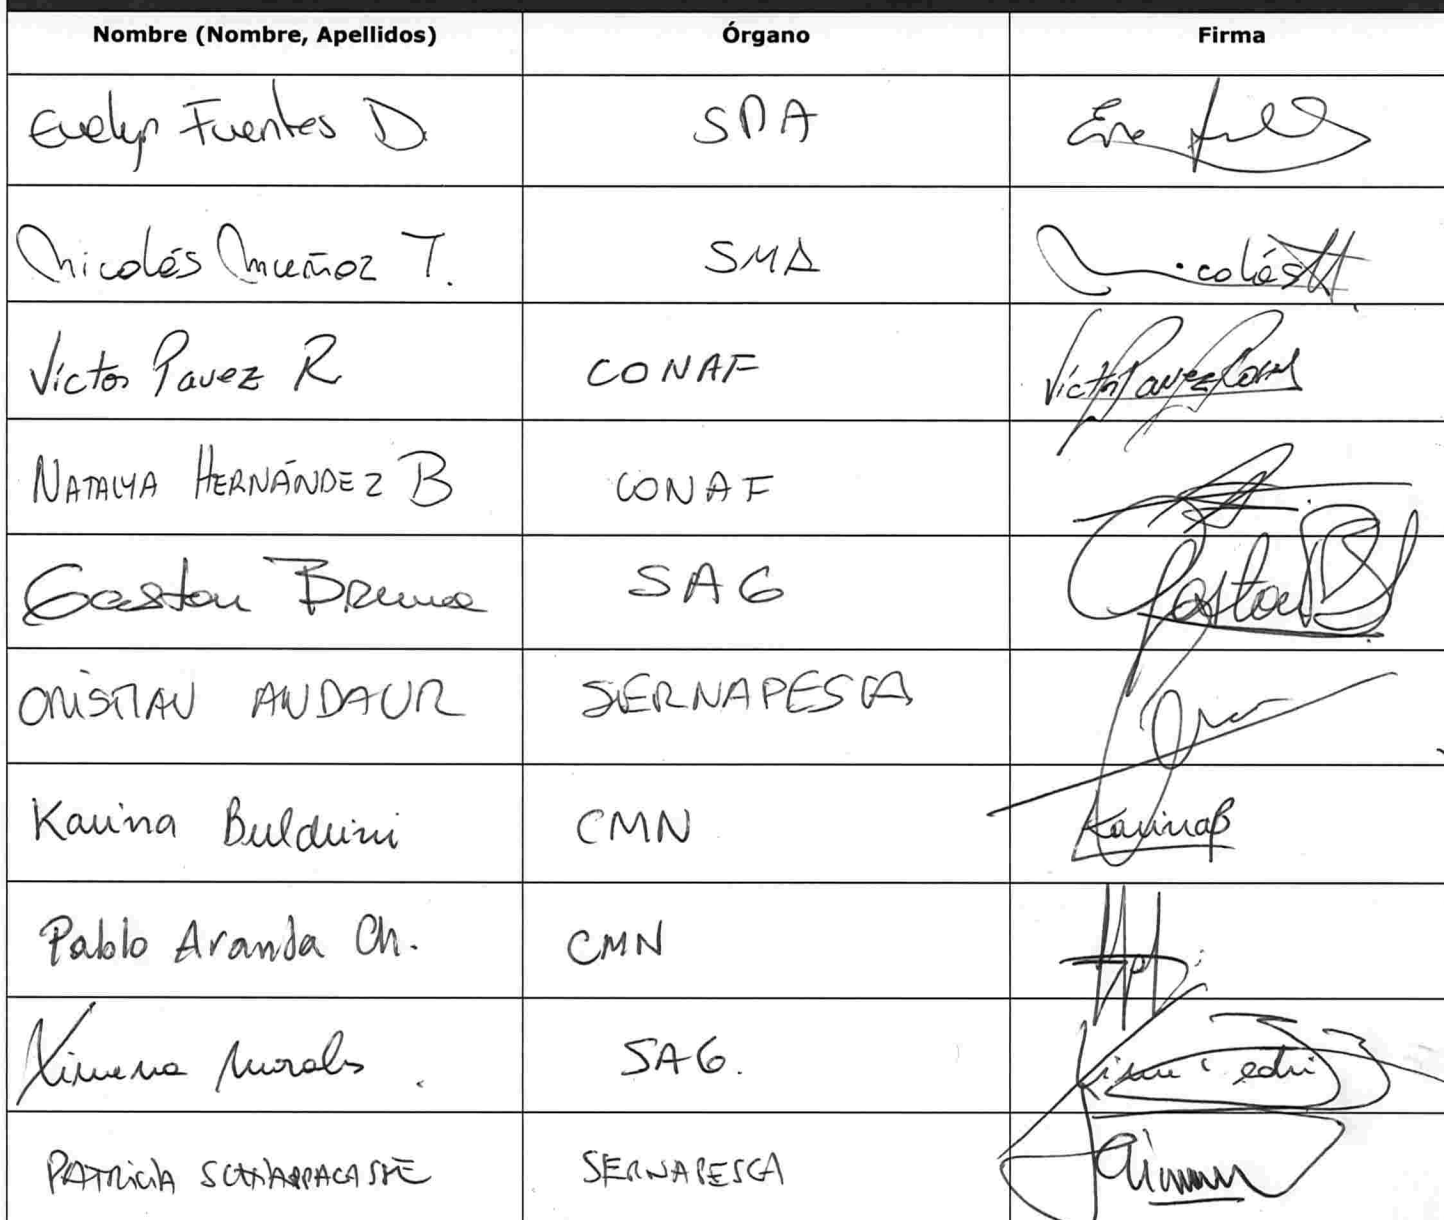 Nombre (Nombre, Apellidos) Órgano Firma
Evelyn Fuentes D. SMA Eve
Nicolás Muñoz T. SMA Nicolás M
Víctor Pavez R CONAF Víctor Pavez
NATALYA HERNÁNDEZ B CONAF
Gaston Bruna SAG Gaston B
CRISTIAN ANDAUR SERNAPESCA
Karina Bulduini CMN Karina B
Pablo Aranda Ch. CMN
Ximena Morales. SAG.
PATRICIA SERNAPESCA